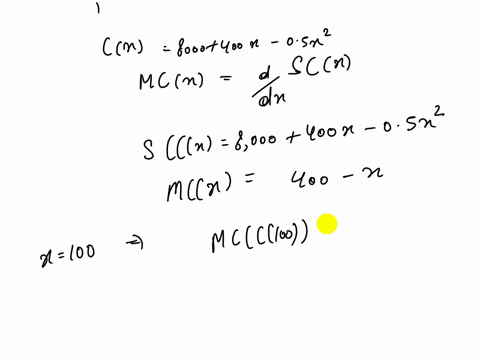 C(x) = 8000+400x - 0.5x²
MC(x) = d/dx SC(x)
S(C(x) = 8,000 + 400x - 0.5x²
M(C(x) = 400 - x
x=100 ⇒ MC(C(100))